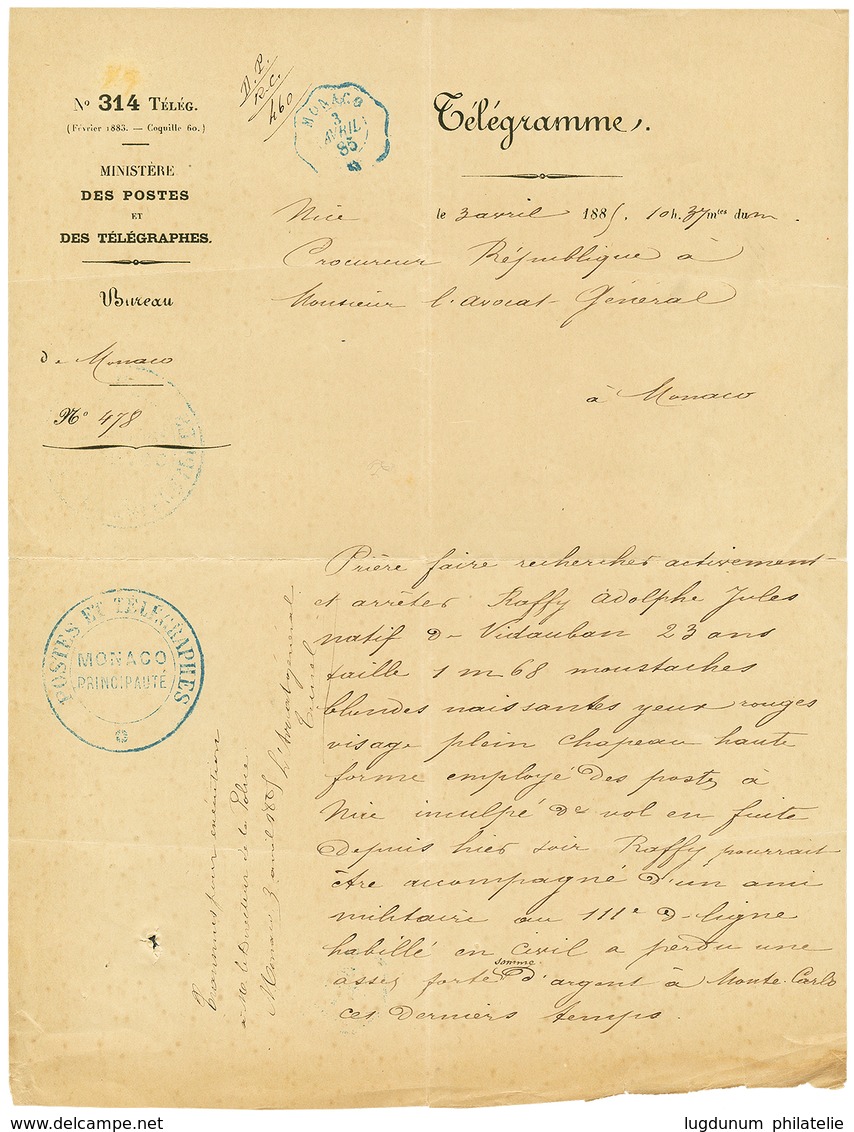 Nº 314 TÉLÉG.
(Février 1883. — Coquille 60.)
MINISTÈRE
DES POSTES
ET
DES TÉLÉGRAPHES.
Bureau
de Monaco
Nº 478
R.C.
460
MONACO
3
AVRIL
85
Télégramme.
Nice le 3 avril 1885. 10h. 37mtes du m.
Procureur République à
Monsieur l'avocat-Général
à Monaco
POSTES ET TÉLÉGRAPHES
MONACO
PRINCIPAUTÉ
Prière faire rechercher activement
et arrêter Raffy Adolphe Jules
natif de Vidauban 23 ans
taille 1 m 68 moustaches
blondes naissantes yeux rouges
visage plein chapeau haute
forme employé des postes à
Nice inculpé de vol en fuite
depuis hier soir Raffy pourrait
être accompagné d'un ami
militaire au 111e de ligne
habillé en civil a perdu une
assez forte somme d'argent à Monte-Carlo
ces derniers temps.
Transmis pour exécution
à Mr le Directeur de la Police
Monaco 3 avril 1885
L'Avocat général
lugdunum philatelie